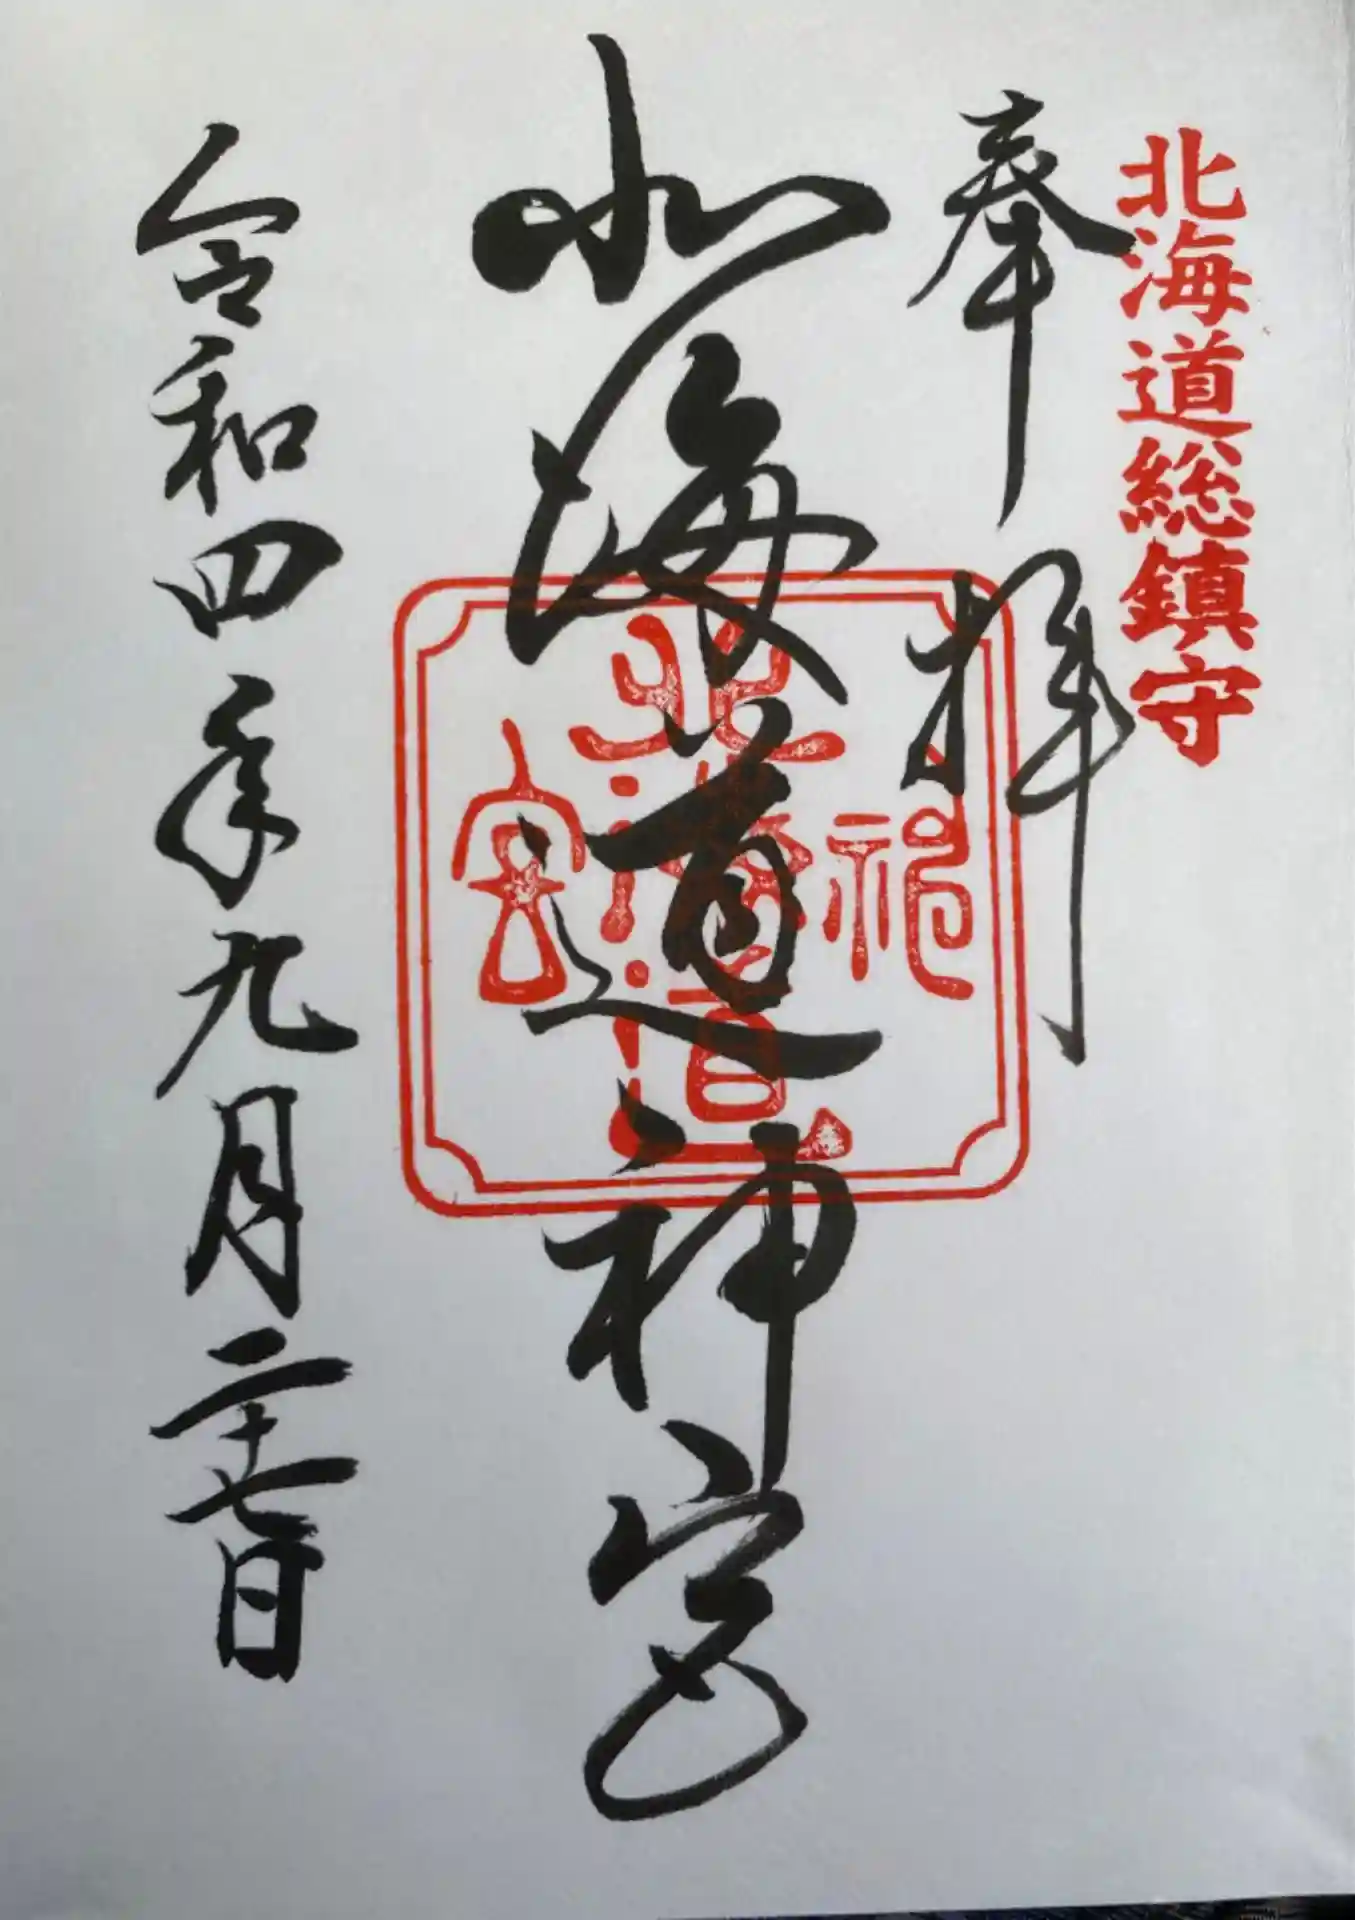 北海道総鎮守
奉拝
北海道神宮
北海道神宮
令和四年九月二十七日